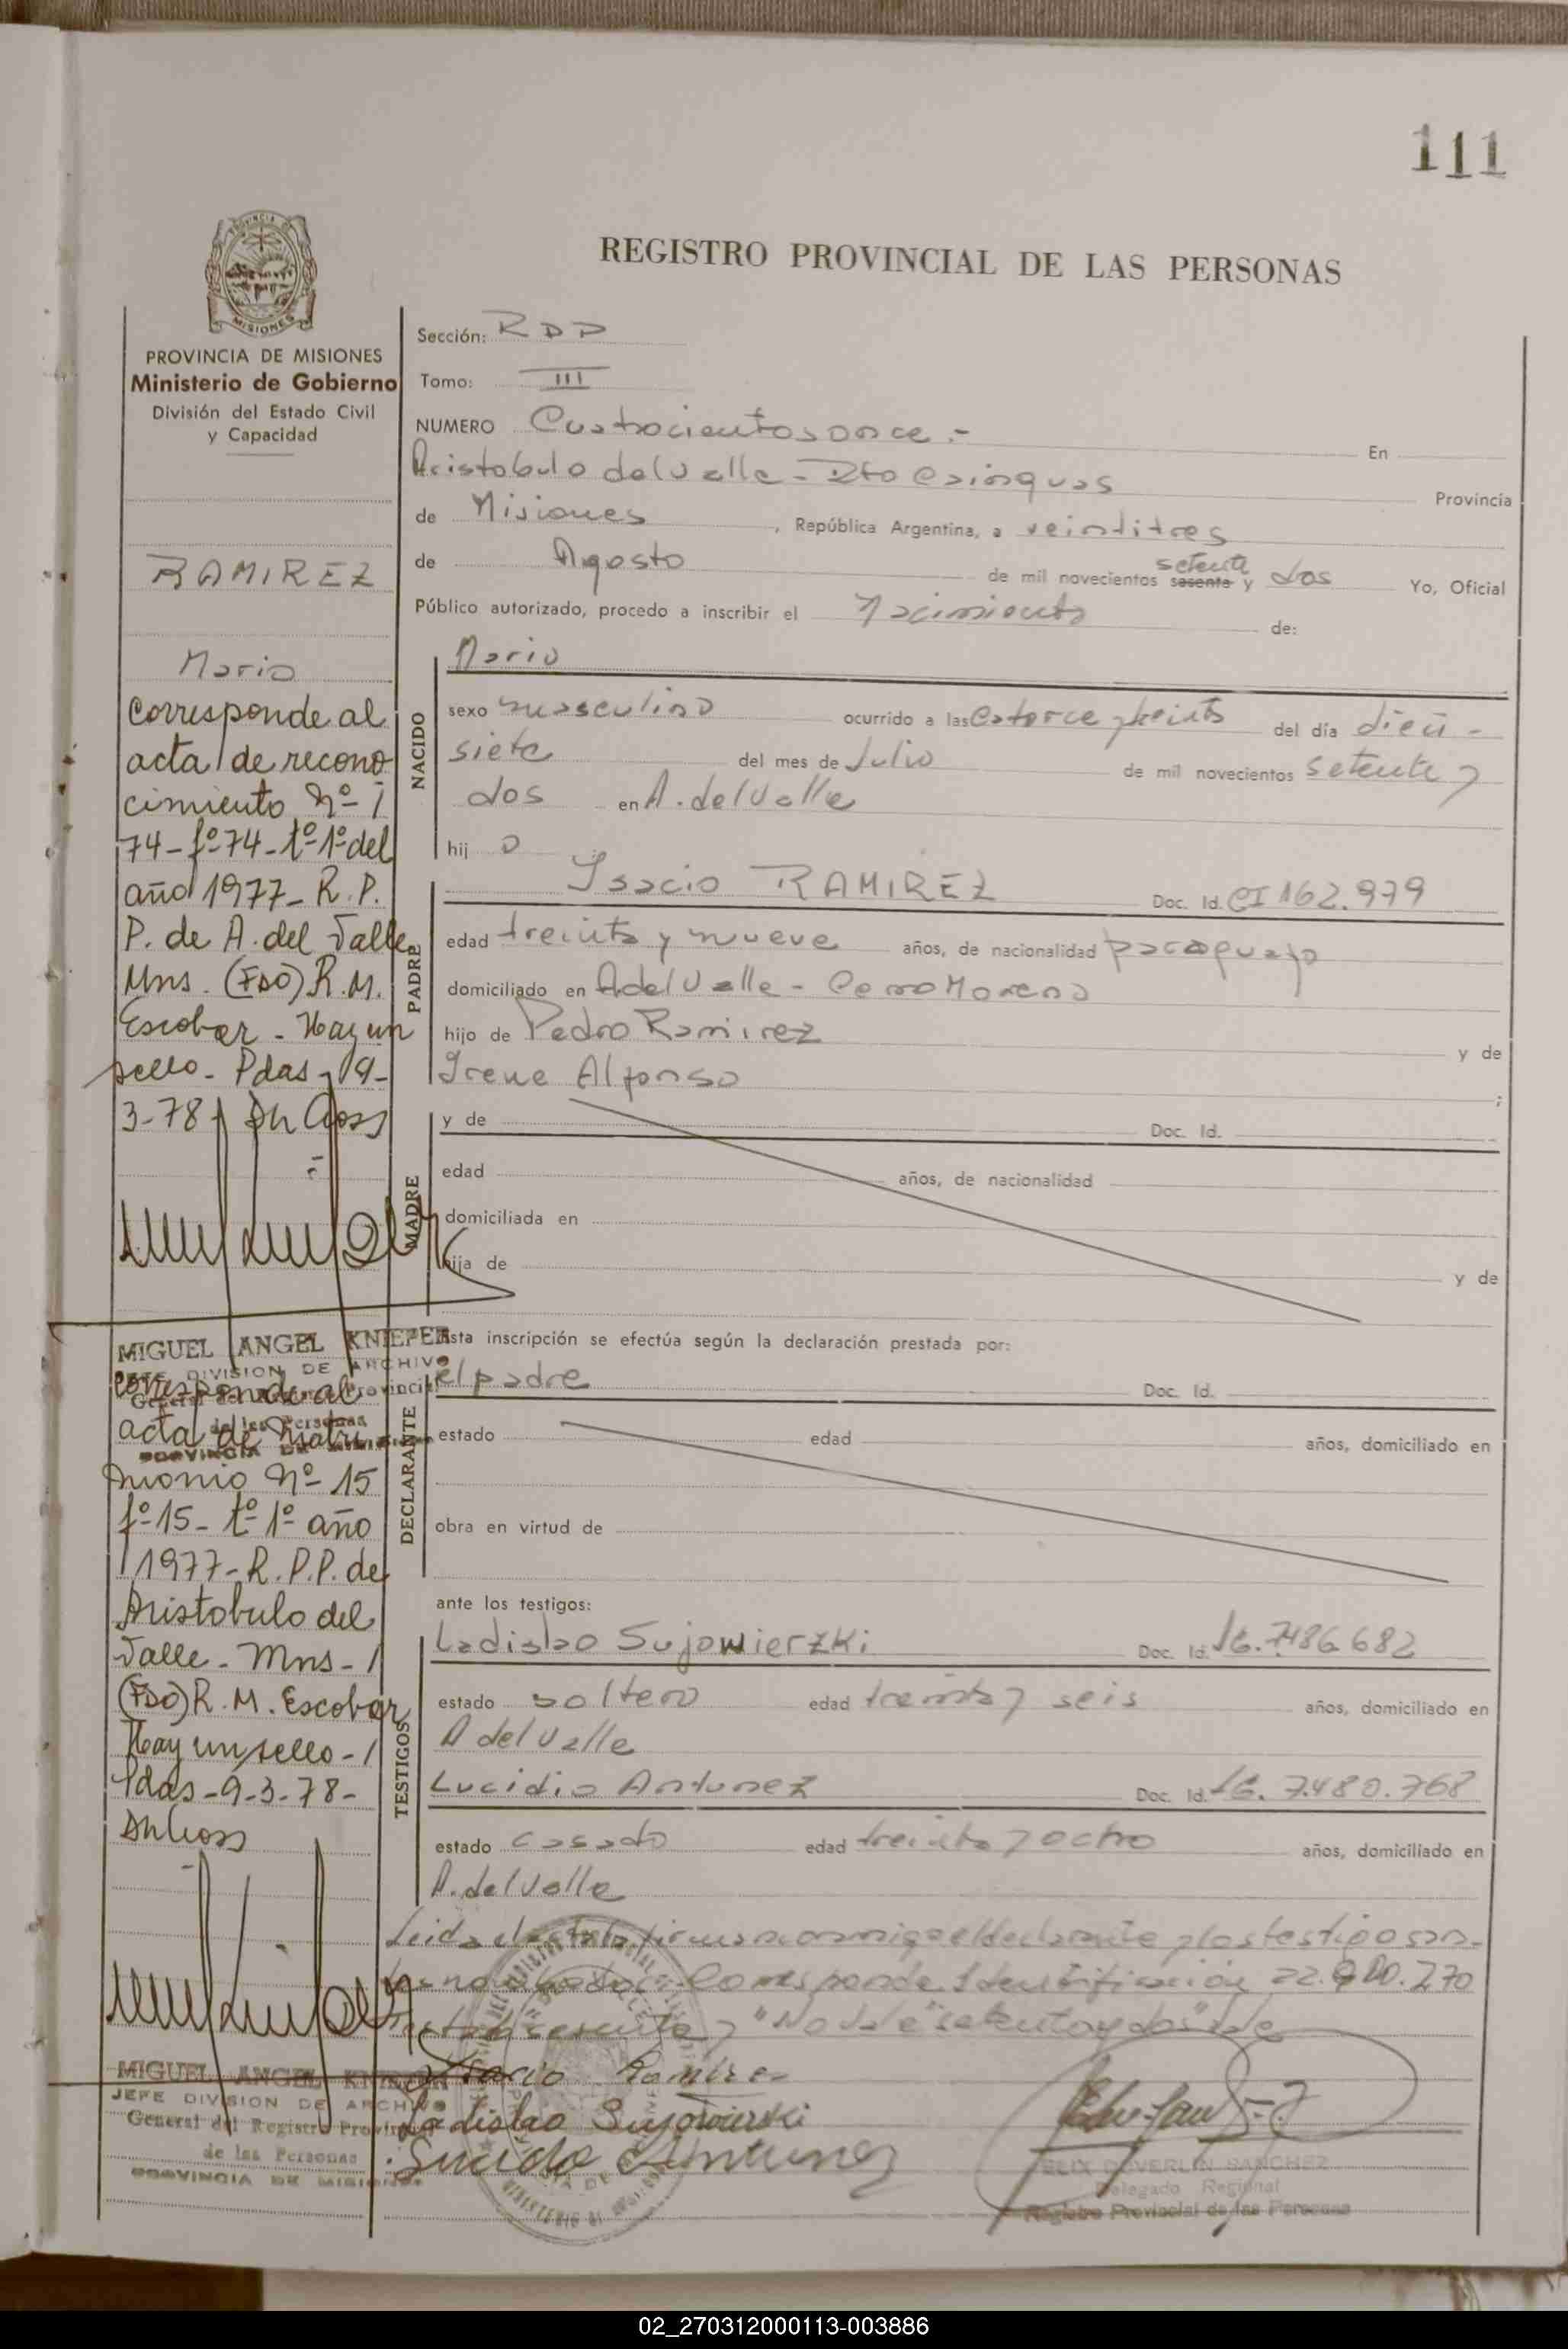 111
REGISTRO PROVINCIAL DE LAS PERSONAS
PROVINCIA DE
MISIONES
PROVINCIA DE MISIONES
Ministerio de Gobierno
División del Estado Civil
y Capacidad
RAMIREZ
Mario
Corresponde al
acta de recono
cimiento Nº
74-fº74-tº1ºdel
año 1977-R.P.
P. de A. del Valle
Mns. (FDO) R.M.
Escobar - Hay un
sello - Pdas - 9-
3-78
MIGUEL ANGEL KNIEPER
JEFE DIVISION DE ARCHIVO
General del Registro Provincial
de las Personas
PROVINCIA DE MISIONES
Corresponde al
acta de Matri
monio Nº 15
fº15-tº1º año
1977-R.P.P. de
Aristobulo del
Valle - Mns -
(FDO) R.M. Escobar
Hay un sello -
Pdas - 9-3-78-
MIGUEL ANGEL KNIEPER
JEFE DIVISION DE ARCHIVO
General del Registro Provincial
de las Personas
PROVINCIA DE MISIONES
Sección: RDD
Tomo: III
NUMERO Cuatrocientos once.- En
Aristobulo del Valle - Dto Cainguas Provincia
de Misiones, República Argentina, a veintitres
de Agosto de mil novecientos sesenta setenta y dos Yo, Oficial
Público autorizado, procedo a inscribir el Nacimiento de:
NACIDO
Mario
sexo masculino ocurrido a las catorce y treinta del día dieci-
siete del mes de Julio de mil novecientos setenta y
dos en A. del Valle
hij o
PADRE
Isacio RAMIREZ Doc. Id. CI 162.979
edad treinta y nueve años, de nacionalidad paraguayo
domiciliado en A del Valle - Cerro Moreno
hijo de Pedro Ramirez y de
Irene Alfonso ;
MADRE
y de Doc. Id.
edad años, de nacionalidad
domiciliada en
hija de y de
Esta inscripción se efectúa según la declaración prestada por:
DECLARANTE
el padre Doc. Id.
estado edad años, domiciliado en
obra en virtud de
ante los testigos:
TESTIGOS
Ladislao Sujowierzki Doc. Id. 7.486.682
estado soltero edad treinta y seis años, domiciliado en
A del Valle
Lucidio Antunez Doc. Id. 7.480.768
estado casado edad treinta y ocho años, domiciliado en
A. del Valle
Leida el acta la firman conmigo el declarante y los testigos
Corresponde Identificación
"setenta y dos" Vale
Isacio Ramire
Ladislao Sujowierski
Lucidio Antunez
FELIX SANCHEZ
Delegado Regional
Registro Provincial de las Personas
02_270312000113-003886